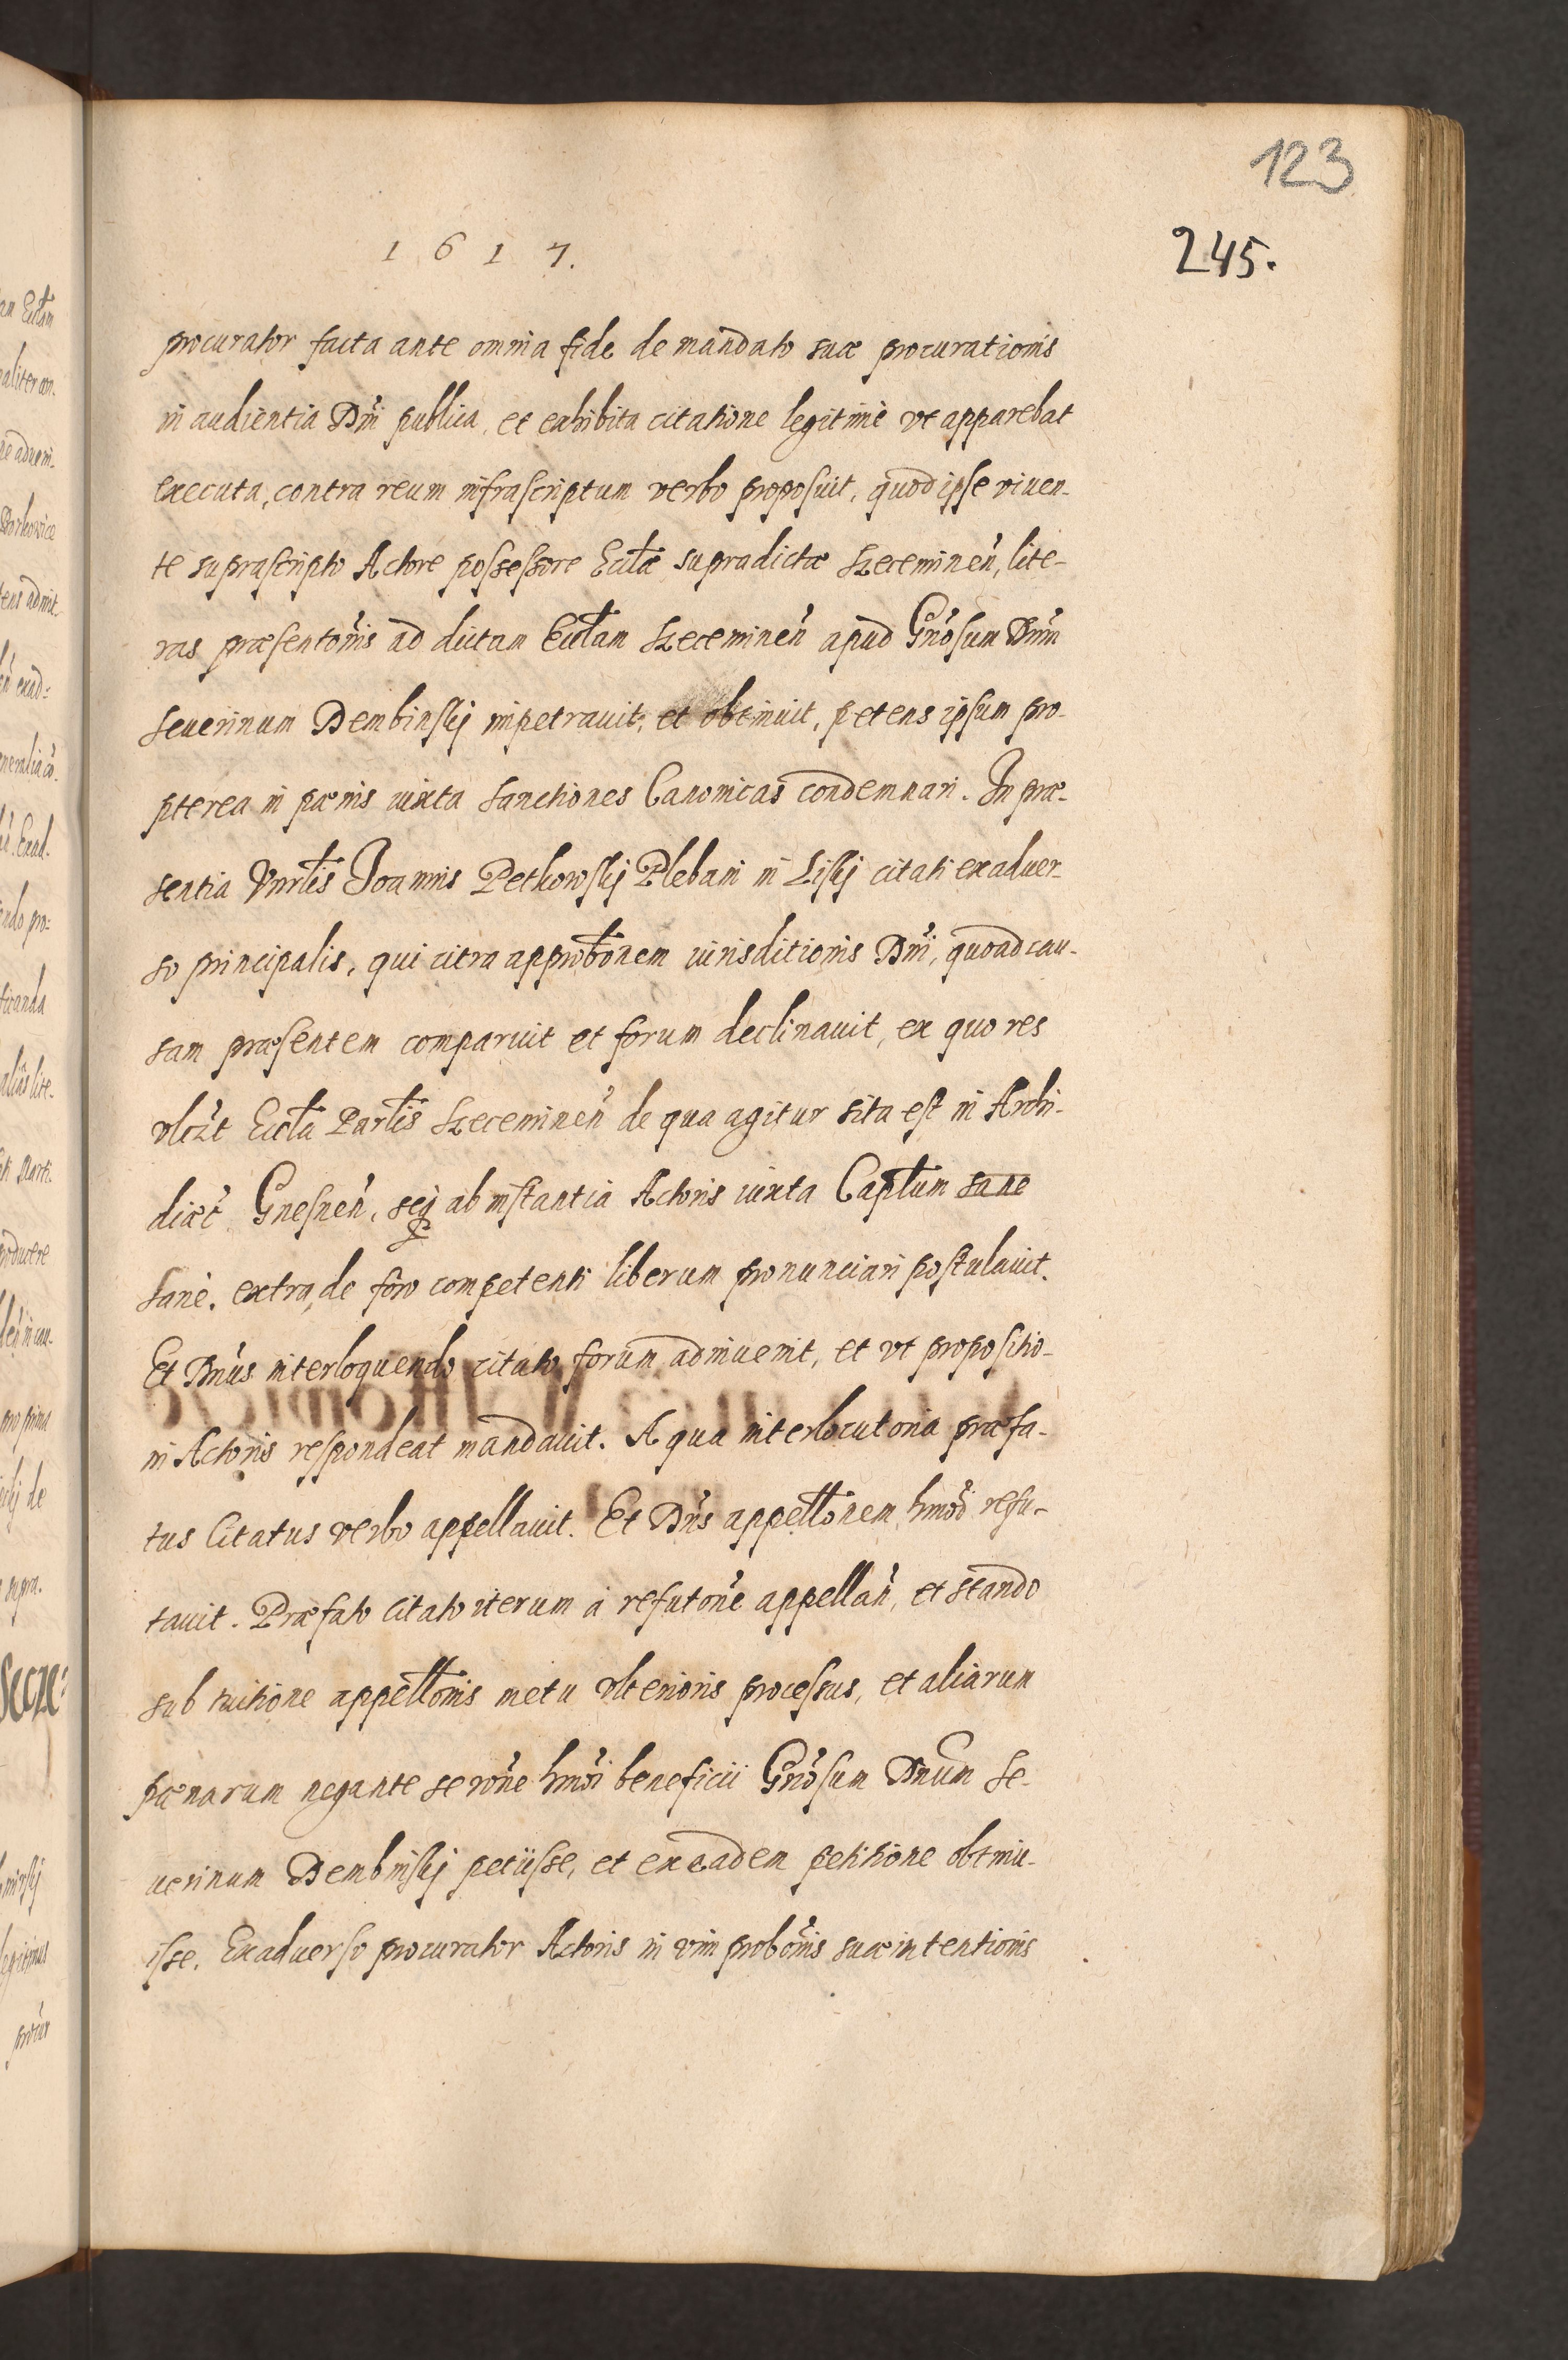 123
1 6 1 7.
245.
procurator facta ante omnia fide de mandato suæ procurationis
in audientia Dñi publica, et exhibita citatione legitimè vt apparebat
executa, contra reum infrascriptum verbo proposuit, quod ipse viuen-
te suprascripto Actore possessore Eccl̃æ supradictæ Szeceminen̉, lite-
ras præsentõnis ad dictam Eccl̃am Szeceminen̉ apud Gnõsum Dñm
Seuerinum Dembinskj impetrauit, et obtinuit, petens ipsum pro-
pterea in pœnis iuxta Sanctiones Canonicas condemnari. In præ-
sentia Vnrl̃is Joannis Petkowskj Plebani in Liskj citati exaduer-
so principalis, qui citra approbõnem iurisditionis Dñi, quoad cau-
sam præsentem comparuit et forum declinauit, ex quo res
vlczt Eccl̃a Parl̃is Szeceminen̉ de qua agitur sita est in Archi-
diæc̃ Gnesnen̉, seq̃ ab instantia Actoris iuxta Capl̃um sane
Sanè. extra, de foro competenti liberum pronunciari postulauit.
Et Dnũs interloquendo citato forum adinuenit, et vt propositio-
ni Actoris respondeat mandauit. A qua interlocutoria præfa-
tus Citatus verbo appellauit. Et Dñs appellõnem hmõi refu-
tauit. Præfato Citato iterum à refutõne appellan̉, et stando
sub tuitione appellõnis metu vlterioris processus, et aliarum
pœnarum negante se rõne hmõi beneficii Gnõsum Dñum Se-
uerinum Dembinskj petiisse, et ex eadem petitione obtinu-
isse. Exaduerso procurator Actoris in vim probõnis suæ intentionis